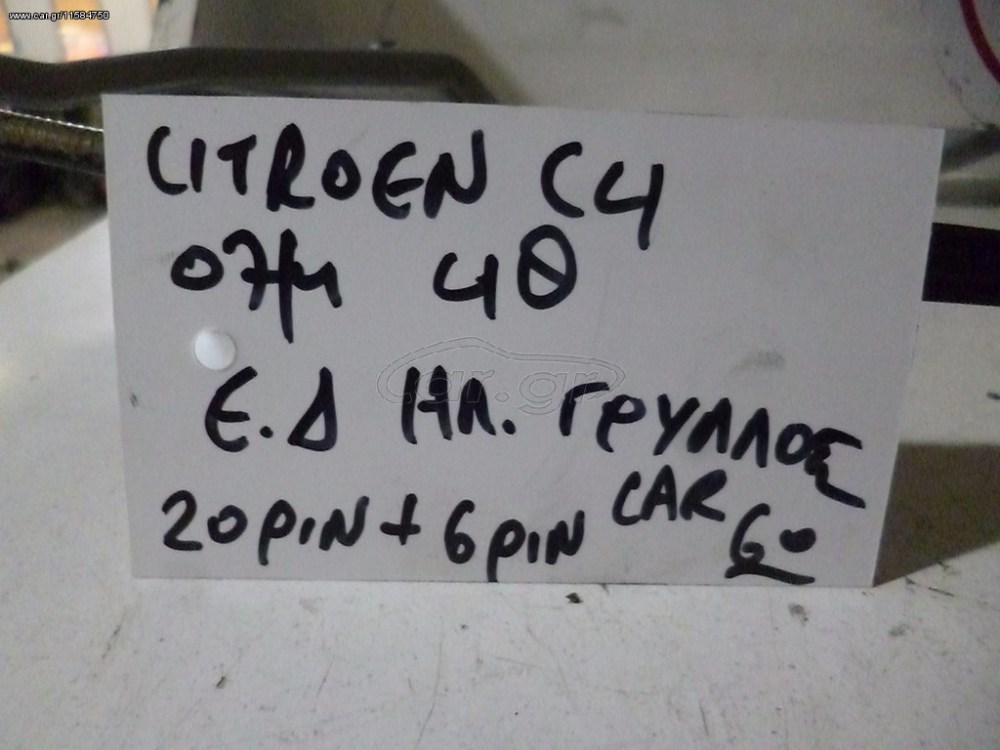 www.car.gr/11584750
CITROEN C4
07/11 4Θ
Ε.Δ ΗΛ. ΓΡΥΛΛΟΣ
20 PIN + 6 PIN CAR 60
car.gr